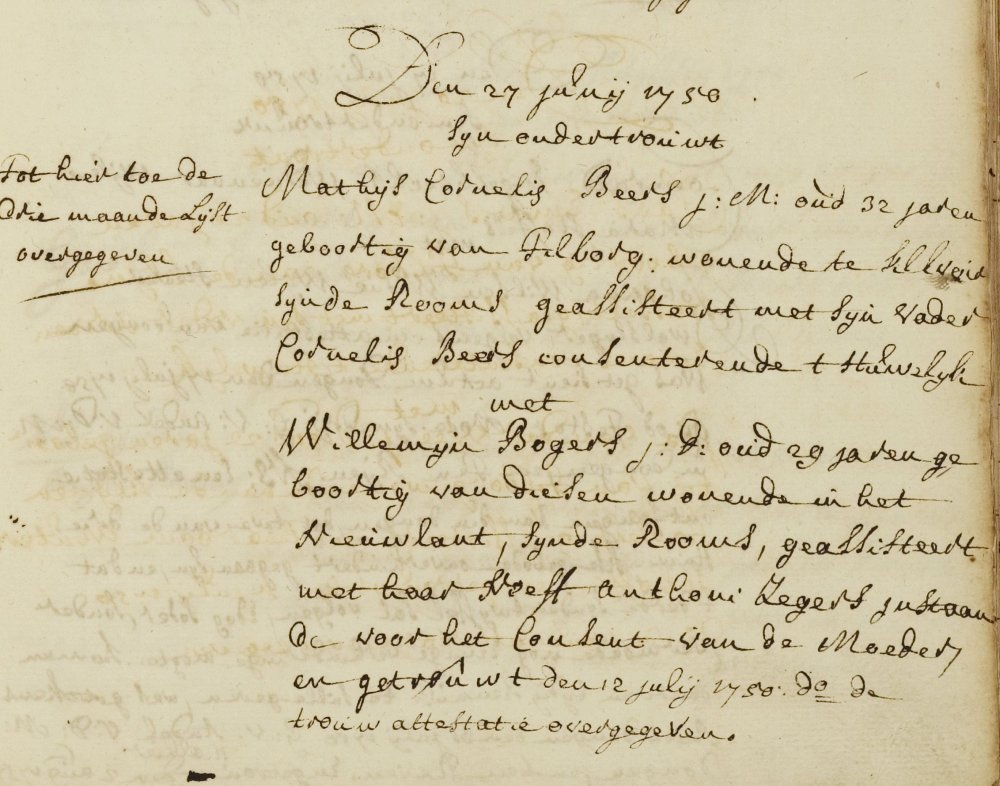 Den 27 junij 1750
syn ondertrouwt
Tot hier toe de
drie maande Lyst
overgegeven
Mathijs Cornelis Beers j: M: oud 32 jaren
geboortig van Tilborg. wonende te
synde Rooms geassisteert met syn vader
Cornelis Beers consenterende t Huwelyk
met
Willemyn Bogers j: D: oud 29 jaren ge
boortig van diesen wonende in het
Nieuwlant, synde Rooms, geassisteert
met haar Neeff anthoni Zegers instaan
de voor het Consent van de Moeder,
en getrouwt den 12 julij 1750. do de
trouw attestatie overgegeven.